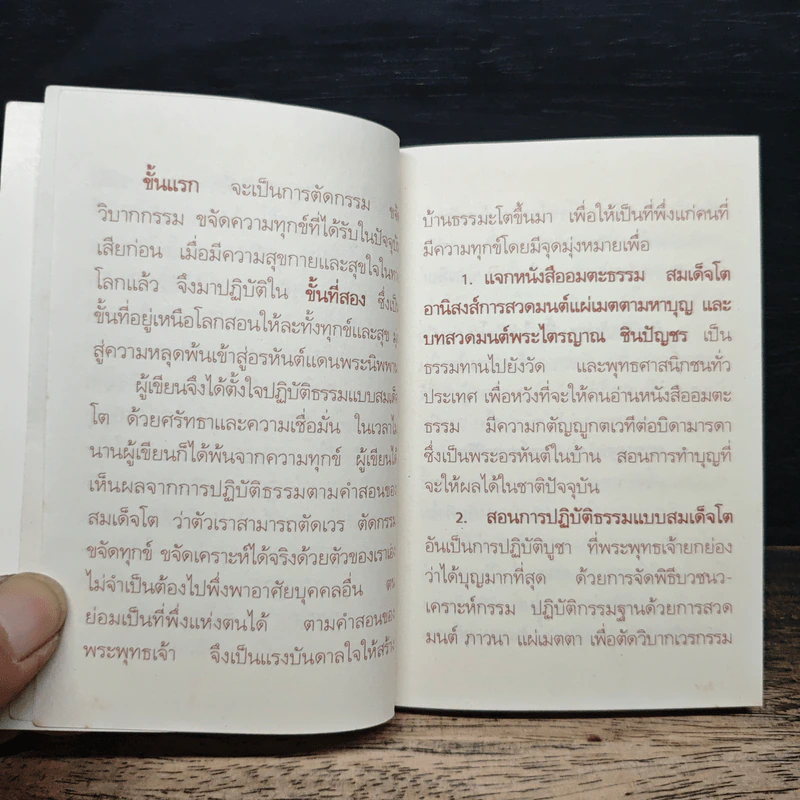 ขั้นแรก จะเป็นการตัดกรรม ขจัด
วิบากกรรม ขจัดความทุกข์ที่ได้รับในปัจจุบั
เสียก่อน เมื่อมีความสุขกายและสุขใจในทาง
โลกแล้ว จึงมาปฏิบัติใน ขั้นที่สอง ซึ่งเป็
ขั้นที่อยู่เหนือโลกสอนให้ละทั้งทุกข์และสุข มุ่
สู่ความหลุดพ้นเข้าสู่อรหันต์แดนพระนิพพาน
ผู้เขียนจึงได้ตั้งใจปฏิบัติธรรมแบบสมเด็จ
โต ด้วยศรัทธาและความเชื่อมั่น ในเวลาไม่
นานผู้เขียนก็ได้พ้นจากความทุกข์ ผู้เขียนได้
เห็นผลจากการปฏิบัติธรรมตามคำสอนของ
สมเด็จโต ว่าตัวเราสามารถตัดเวร ตัดกรรม
ขจัดทุกข์ ขจัดเคราะห์ได้จริงด้วยตัวของเราเอง
ไม่จำเป็นต้องไปพึ่งพาอาศัยบุคคลอื่น ตน
ย่อมเป็นที่พึ่งแห่งตนได้ ตามคำสอนของ
พระพุทธเจ้า จึงเป็นแรงบันดาลใจให้สร้าง
บ้านธรรมะโตขึ้นมา เพื่อให้เป็นที่พึ่งแก่คนที่
มีความทุกข์โดยมีจุดมุ่งหมายเพื่อ
1. แจกหนังสืออมตะธรรม สมเด็จโต
อานิสงส์การสวดมนต์แผ่เมตตามหาบุญ และ
บทสวดมนต์พระไตรญาณ ชินปัญชร เป็น
ธรรมทานไปยังวัด และพุทธศาสนิกชนทั่ว
ประเทศ เพื่อหวังที่จะให้คนอ่านหนังสืออมตะ
ธรรม มีความกตัญญูกตเวทีต่อบิดามารดา
ซึ่งเป็นพระอรหันต์ในบ้าน สอนการทำบุญที่
จะให้ผลได้ในชาติปัจจุบัน
2. สอนการปฏิบัติธรรมแบบสมเด็จโต
อันเป็นการปฏิบัติบูชา ที่พระพุทธเจ้ายกย่อง
ว่าได้บุญมากที่สุด ด้วยการจัดพิธีบวชนว-
เคราะห์กรรม ปฏิบัติกรรมฐานด้วยการสวด
มนต์ ภาวนา แผ่เมตตา เพื่อตัดวิบากเวรกรรม